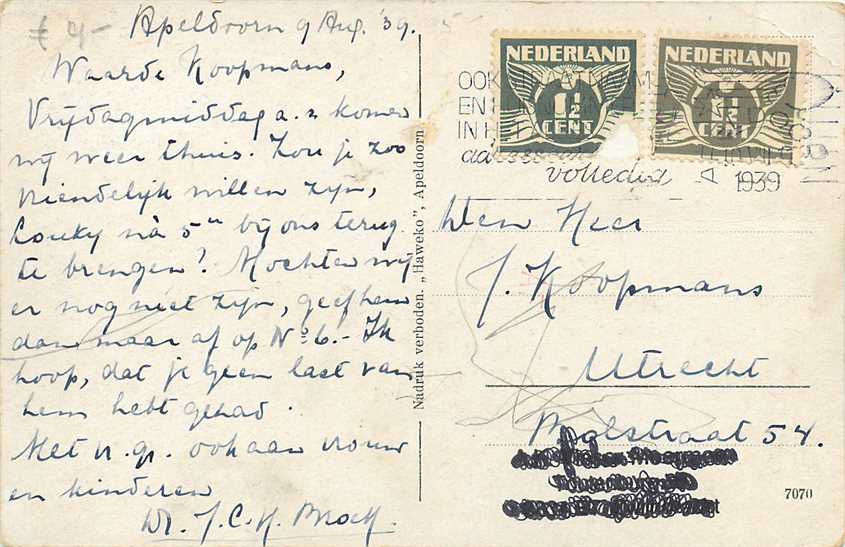 £ 4-
Apeldoorn 9 Aug. '39.
Waarde Koopmans,
Vrijdagmiddag a.s. komen
wij weer thuis. Zou je zoo
vriendelijk willen zijn,
Louky nà 5 u bij ons terug
te brengen? Mochten wij
er nog niet zijn, geef hem
dan maar af op No 6.- Ik
hoop, dat je geen last van
hem hebt gehad.
Met v.gr. ook aan vrouw
en kinderen
Dr. J.C.H.
Nadruk verboden. „Haweko”, Apeldoorn
NEDERLAND
1½
CENT
NEDERLAND
1½
CENT
OOK STRAATNAAM
EN
IN HET
adres
volledig
1939
Den Heer
J. Koopmans
Utrecht
Molstraat 54.
7070